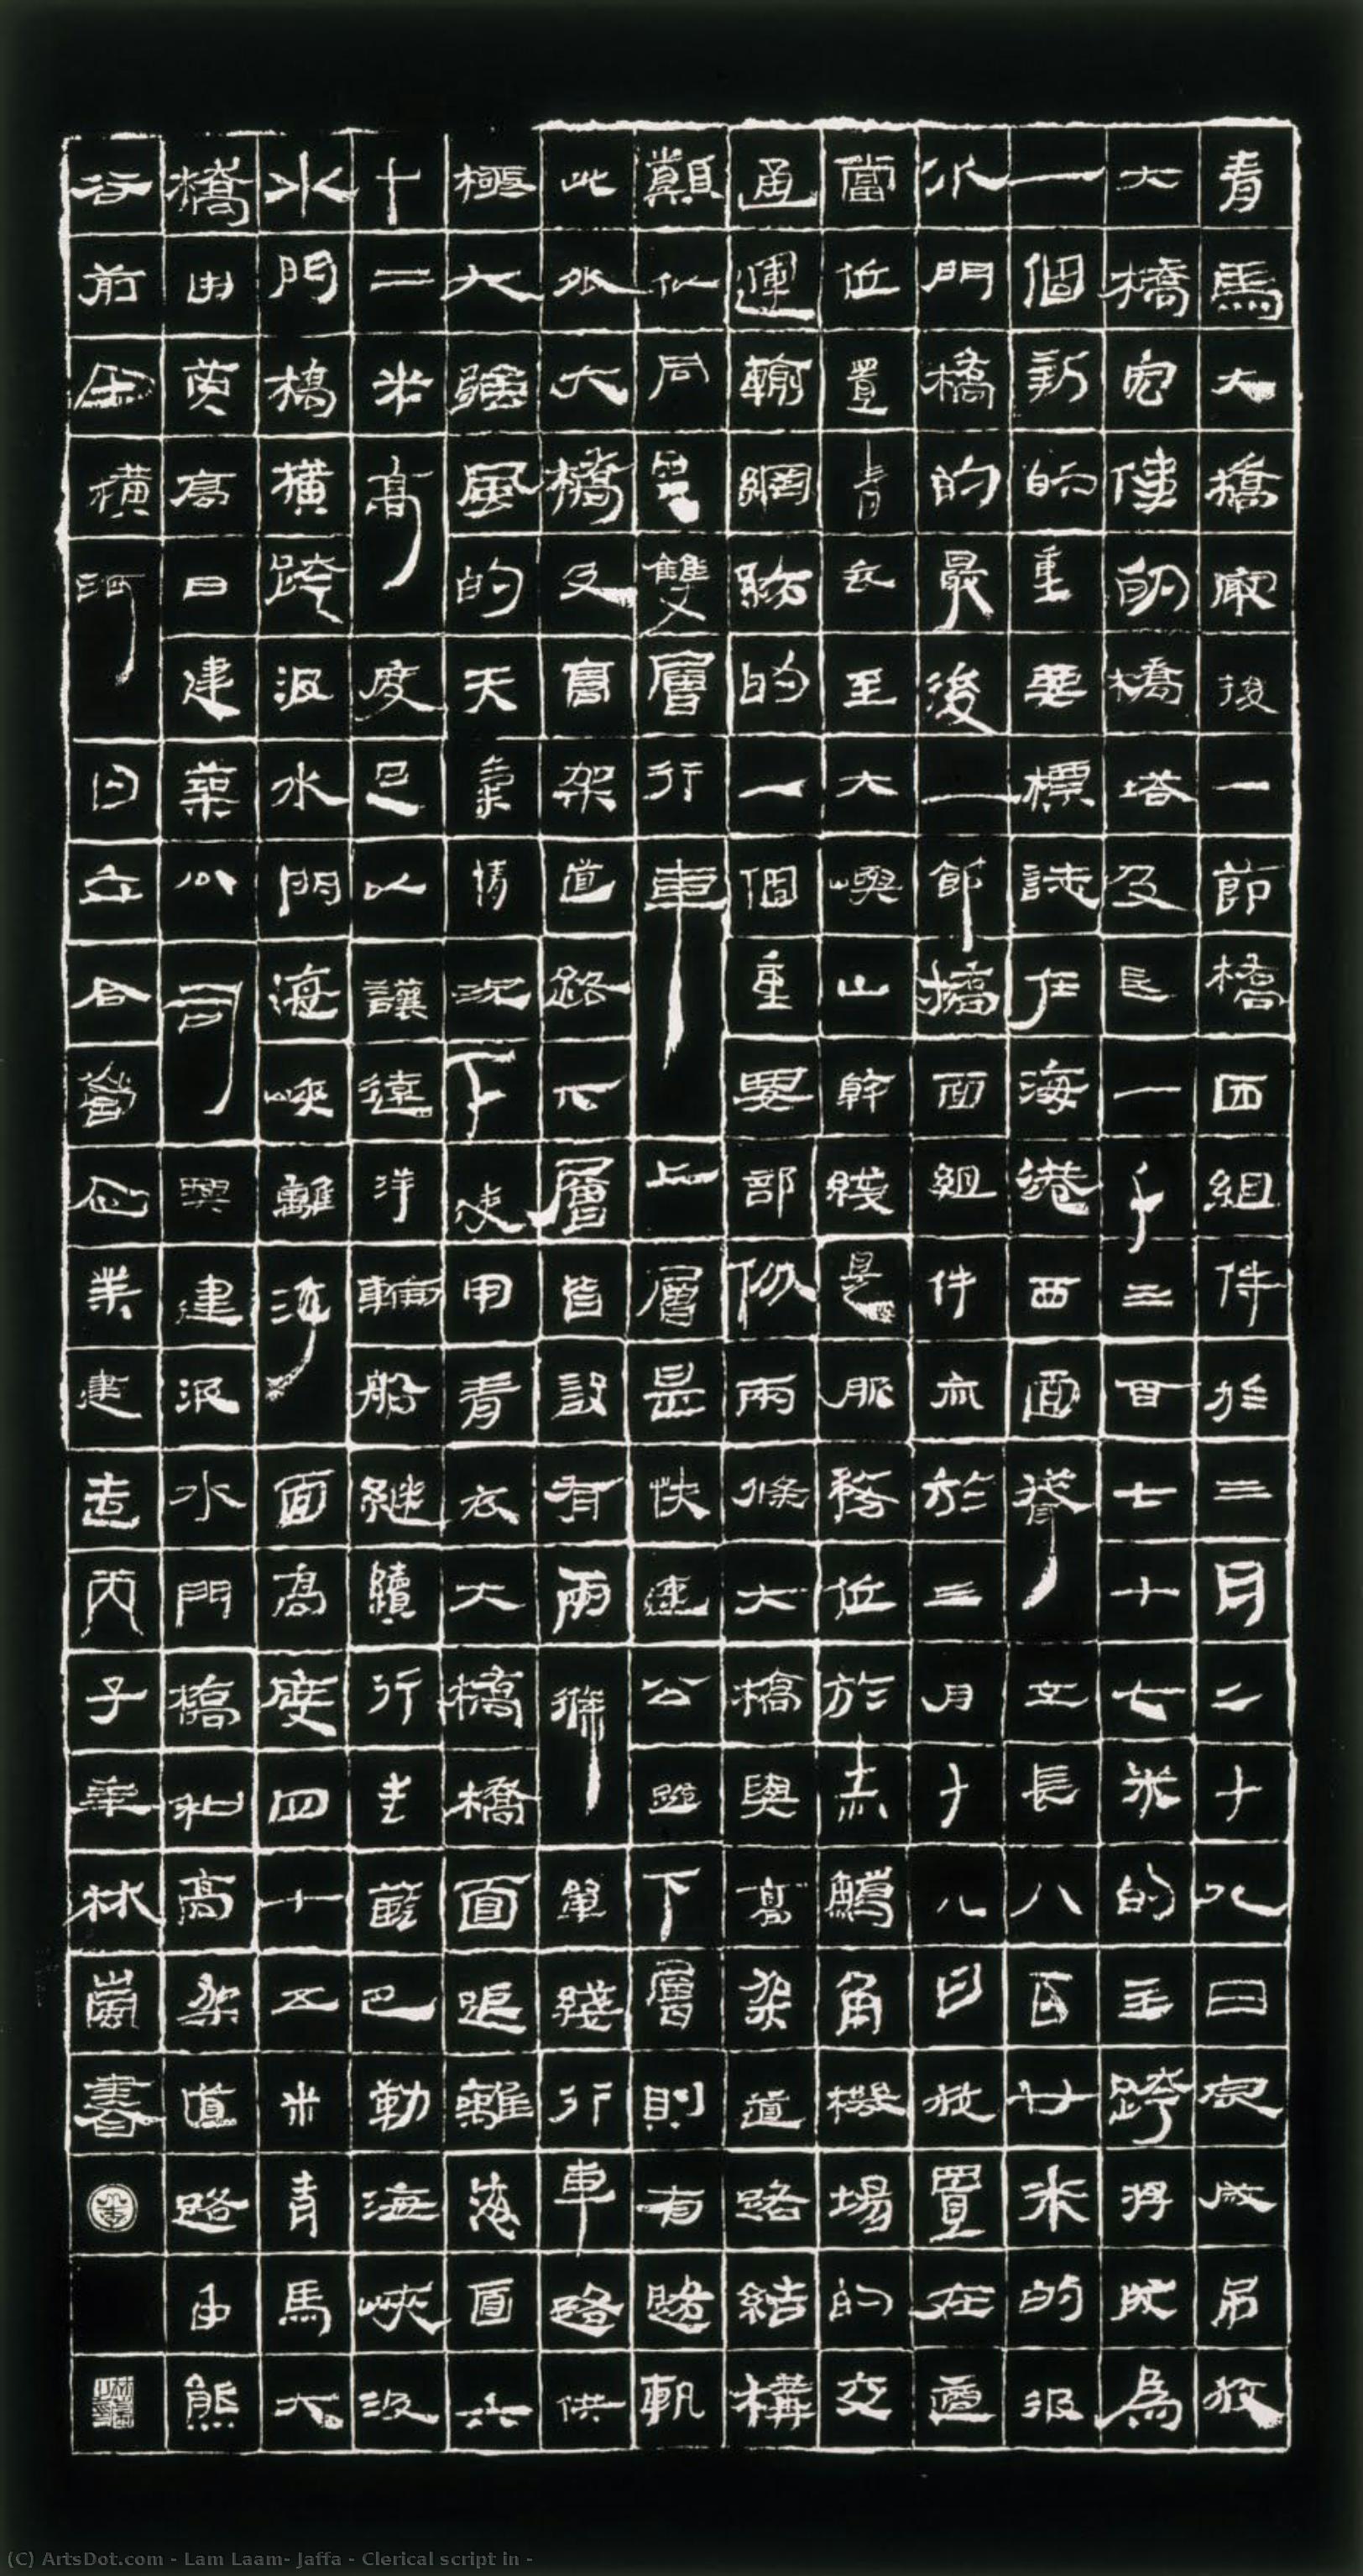 青馬大橋最後一節橋面組件於三月二十八日完成吊放
大橋宏偉的橋塔及長一千三百七十七米的主跨拼成為
一個新的重要標誌在海港西面聳立長八百廿米的汲
水門橋的最後一節橋面組件亦於三月十八日放置在適
當位置青衣至大嶼山幹綫是服務位於赤鱲角機場的交
通運輸網絡的一個重要部份兩條大橋與高架道路結構
類似同是雙層行車上層是快速公路下層則有路軌
此外大橋及高架道路下層皆設有兩條單綫行車路供
極大強風的天氣情況下使用青衣大橋橋面距離海面六
十二米高度足以讓遠洋輪船繼續行走藍巴勒海峽汲
水門橋橫跨汲水門海峽離海面高度四十五米青馬大
橋由英高日建築公司興建汲水門橋和高架道路由熊
谷前田橫河日立合營企業建造丙子年林嵐書
(C) ArtsDot.com - Lam Laam- Jaffa - Clerical script in -